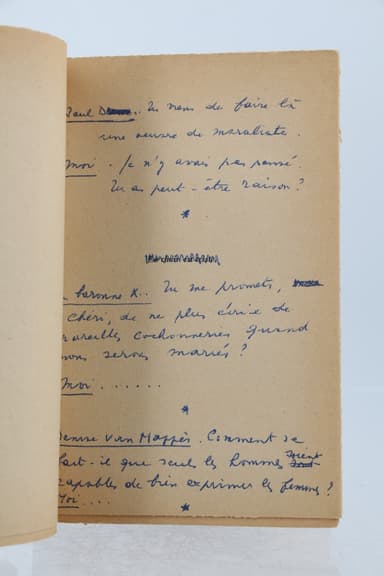 Paul D... Tu viens de faire là
une œuvre de moraliste.
Moi - Je n'y avais pas pensé.
Tu as peut-être raison?
*
baronne X.. Tu me promets,
chéri, de ne plus écrire de
pareilles cochonneries quand
nous serons mariés?
Moi ......
*
Denise Van Moppès. Comment se
fait-il que seuls les hommes soient
capables de bien exprimer les femmes?
Moi ...
*